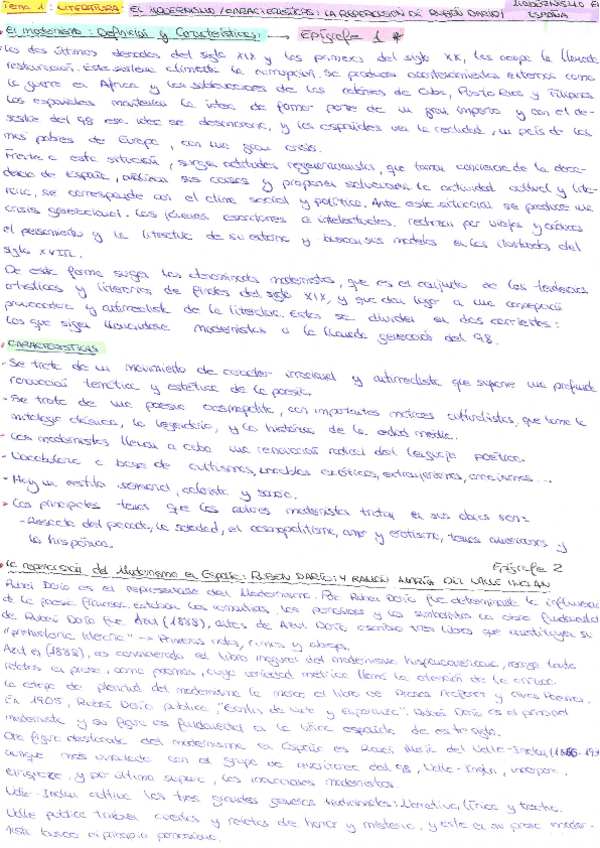 Tema 1: LITERATURA: EL MODERNISMO / CARACTERISTICAS: LA REPERCUSION DE RUBEN DARIO / MODERNISMO EN ESPAÑA
El modernismo: Definición y Características: → Epígrafe 1
Las dos últimas décadas del siglo XIX y las primeras del siglo XX, las ocupa la llamada
restauración. Este sistema alimenta la corrupción. Se producen acontecimientos externos como
la guerra en África y las sublevaciones de las colonias de Cuba, Puerto Rico y Filipinas
Los españoles mantenían la idea de formar parte de un gran imperio y con el de-
sastre del 98 esa idea se desmorona, y los españoles ven la realidad, un país de los
más pobres de Europa, con una gran crisis.
Frente a esta situación, surgen actitudes regeneracionistas, que toman conciencia de la deca-
dencia de España, analizan sus causas y proponen soluciones. La actividad cultural y lite-
raria, se corresponde con el clima social y político. Ante esta situación se produce una
crisis generacional. Los jóvenes escritores e intelectuales rechazan por viejos y caducos
el pensamiento y la literatura de su entorno y buscan sus modelos en los ilustrados del
siglo XVIII.
De esta forma surgen los denominados modernistas, que es el conjunto de las tendencias
artísticas y literarias de finales del siglo XIX, y que dan lugar a una concepción
y antirrealista de la literatura. Estos se dividen en dos corrientes:
Los que siguen llamándose modernistas o la llamada generación del 98.
CARACTERISTICAS
- Se trata de un movimiento de carácter irracional y antirrealista que supone una profunda
renovación temática y estética de la poesía.
- Se trata de una poesía cosmopolita, con importantes matices culturalistas, que toma la
mitología clásica, lo legendario, y la historia de la edad media.
- Los modernistas llevan a cabo una renovación radical del lenguaje poético.
- Vocabulario a base de cultismos, vocablos exóticos, extranjerismos, arcaísmos...
- Hay un estilo sensorial, colorista y sonoro.
- Los principales temas que los autores modernistas tratan en sus obras son:
- Rescate del pasado, la soledad, el cosmopolitismo, amor y erotismo, temas americanos y
lo hispánico.
La repercusión del Modernismo en España: RUBEN DARIO Y RAMON MARIA DEL VALLE INCLAN Epígrafe 2
Rubén Darío es el representante del Modernismo. Para Rubén Darío fue determinante la influencia
de la poesía francesa. Estaban los románticos, los parnasianos y los simbolistas. La obra fundamental
de Rubén Darío fue Azul (1888), antes de Azul Darío escribió tres libros que constituyen su
"prehistoria literaria" → Primeras notas, rimas y abrojos.
Azul (1888), es considerado el libro inaugural del modernismo hispanoamericano, recoge tanto
relatos en prosa, como poemas, cuya variedad métrica llamó la atención de la crítica.
La etapa de plenitud del modernismo la marca el libro de Prosas Profanas y otros Poemas.
En 1905, Rubén Darío publica "Cantos de vida y esperanza". Rubén Darío es el principal
modernista y su figura es fundamental en la lírica española de este siglo.
Otra figura destacada del modernismo en España es Ramón María del Valle-Inclán (1866-193
aunque más vinculado con el grupo de escritores del 98, Valle-Inclán, incorpora,
enriquece, y por último supera, las innovaciones modernistas.
Valle-Inclán cultiva los tres grandes géneros tradicionales: Narrativa, lírica y teatro.
Valle publica también cuentos y relatos de horror y misterio, y este en su prosa moder-
nista busca el principio